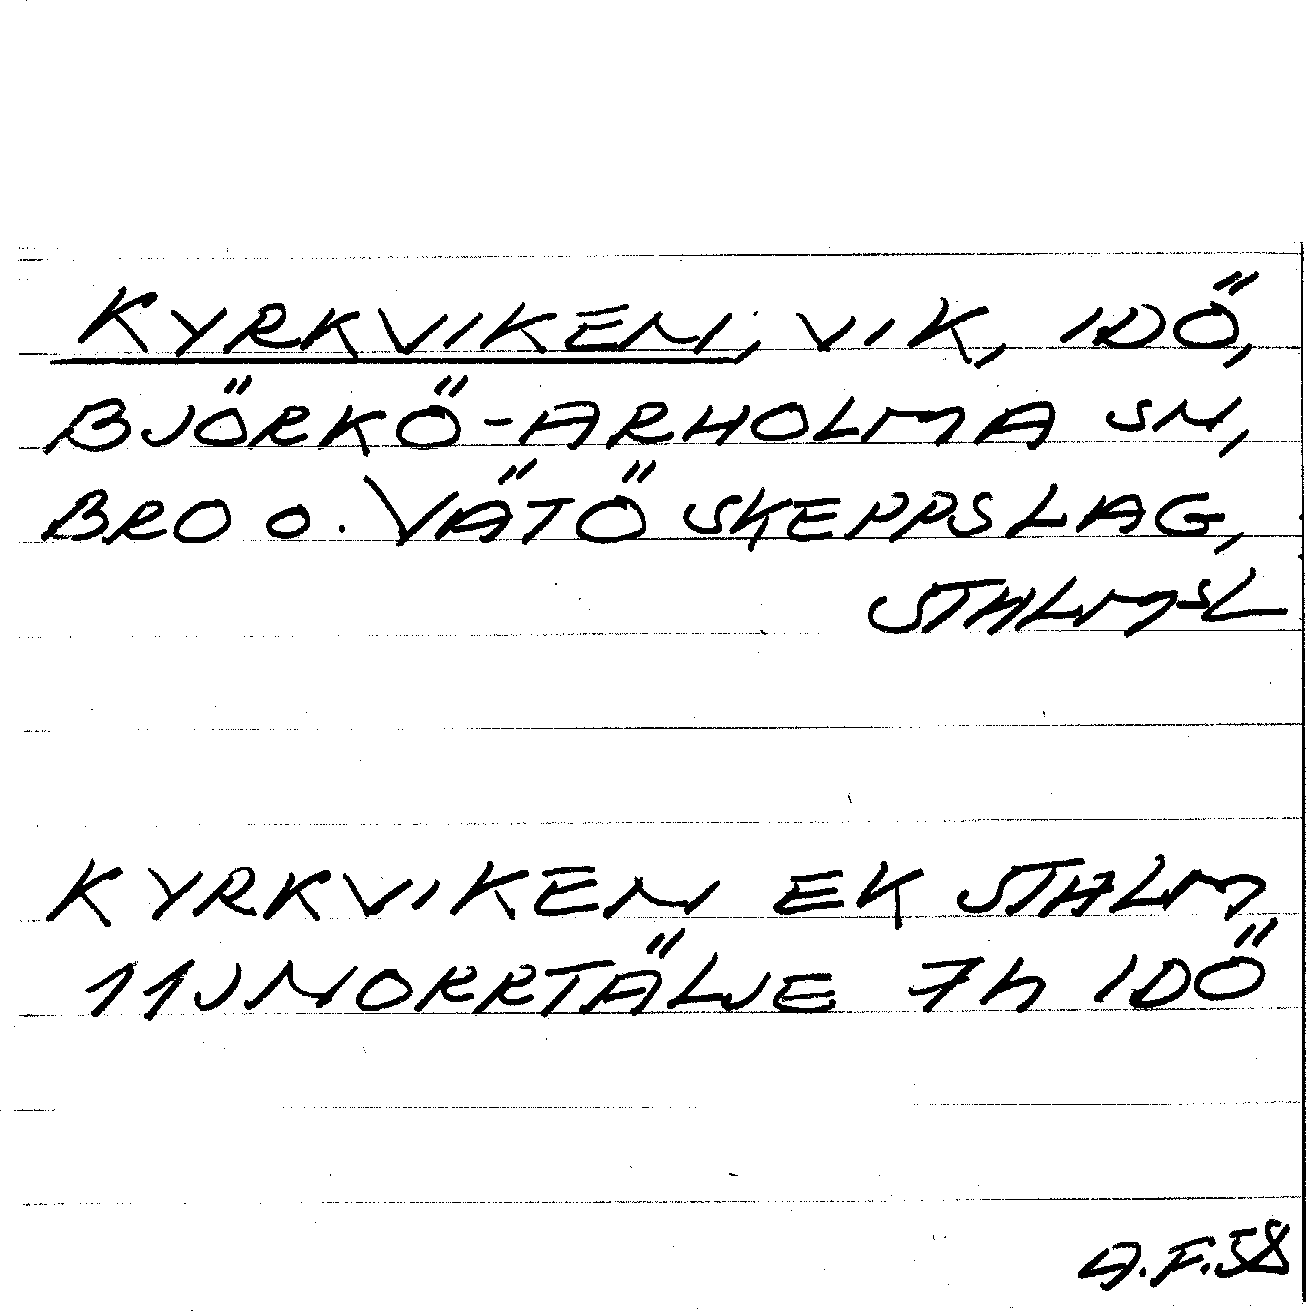 KYRKVIKEN, VIK, IDÖ,
BJÖRKÖ-ARHOLMA SN,
BRO o. VÄTÖ SKEPPSLAG,
STHLMSL
KYRKVIKEN EK STHLM
11J NORRTÄLJE 7h IDÖ
A.F.58